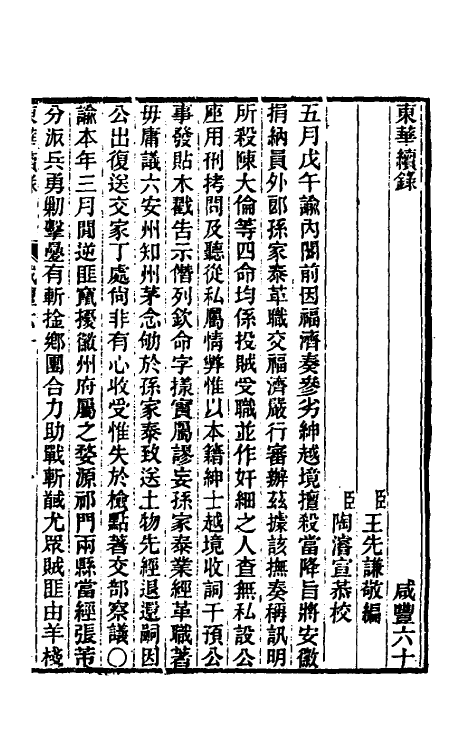 東華續錄 咸豐六十
臣王先謙敬編
臣陶濬宣恭校
五月戊午諭內閣前因福濟奏參劣紳越境擅殺當降旨將安徽
捐納員外郎孫家泰革職交福濟嚴行審辦茲據該撫奏稱訊明
所殺陳大倫等四命均係投賊受職並作奸細之人查無私設公
座用刑拷問及聽從私屬情弊惟以本籍紳士越境收詞干預公
事發貼木戳告示僭列欽命字樣實屬謬妄孫家泰業經革職著
毋庸議六安州知州茅念劬於孫家泰致送土物先經退還嗣因
公出復送交家丁處何非有心收受惟失於檢點著交部察議〇
諭本年三月閒逆匪竄擾徽州府屬之婺源祁門兩縣當經張芾
分派兵勇勦擊疊有斬擒鄉團合力助戰斬馘尤眾賊匪由羊棧
東華續錄 咸豐六十